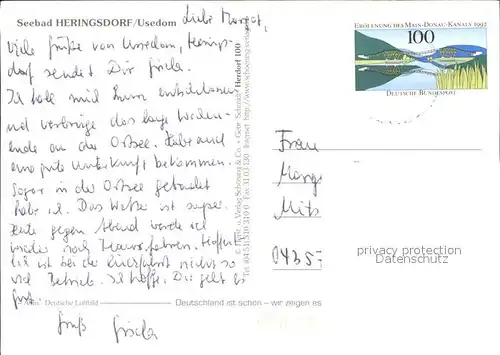 Seebad HERINGSDORF/Usedom
Liebe Margot,
viele Grüße von Usedom, Herings-
dorf sendet Dir Gisela.
Ich habe mich kurz entschlossen
und verbringe das lange Wochen-
ende an der Ostsee. Habe auch
eine gute Unterkunft bekommen.
Sogar in der Ostsee gebadet
habe ich. Das Wetter ist super.
Heute gegen Abend werde ich
wieder nach Hause fahren. Hoffent-
lich ist bei der Rückfahrt nicht so
viel Betrieb. Ich hoffe, Dir geht es
gut.
Gruß Gisela
Deutsche Luftbild
Deutschland ist schön – wir zeigen es
Druck u. Verlag Schöning & Co. + Gebr. Schmidt
Tel. (04 51) 5 31 03-0 Fax 31 03-130 Internet http://www.schoening-verlag
Herdorf 100
ERÖFFNUNG DES MAIN-DONAU-KANALS 1992
100
DEUTSCHE BUNDESPOST
Frau
Marg
Mits
0435-
privacy protection
Datenschutz